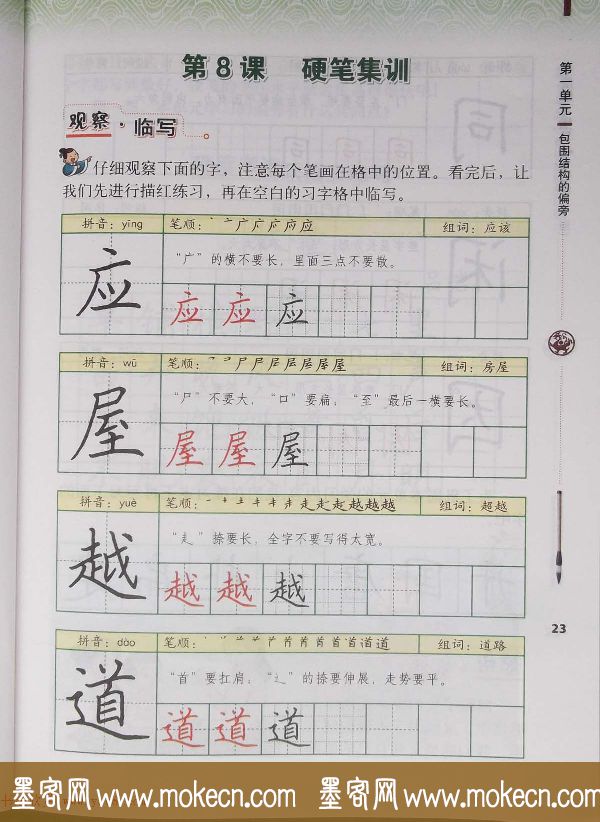 第8课 硬笔集训
观察·临写
仔细观察下面的字，注意每个笔画在格中的位置。看完后，让
我们先进行描红练习，再在空白的习字格中临写。
拼音：yīng 笔顺： 组词：应该
“广”的横不要长，里面三点不要散。
应 应 应 应
拼音：wū 笔顺： 组词：房屋
“尸”不要大，“口”要扁，“至”最后一横要长。
屋 屋 屋 屋
拼音：yuè 笔顺： 组词：超越
“走”捺要长，全字不要写得太宽。
越 越 越 越
拼音：dào 笔顺： 组词：道路
“首”要扛肩，“辶”的捺要伸展，走势要平。
道 道 道 道
第一单元 包围结构的偏旁
23
墨客网 www.mokecn.com 墨客网 www.mokecn.com